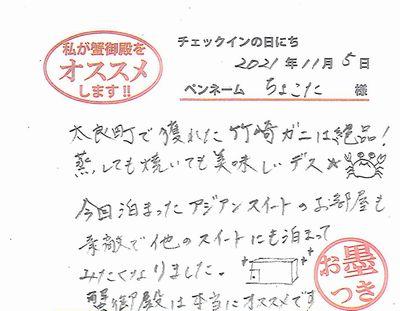 私が蟹御殿を
オススメ
します!!
チェックインの日にち
2021年11月5日
ペンネーム ちょこた 様
太良町で獲れた竹崎ガニは絶品!
蒸しても焼いても美味しいデス
今回泊まったアジアンスイートのお部屋も
素敵で他のスイートにも泊まって
みたくなりました。
蟹御殿は本当にオススメです
お墨
つき